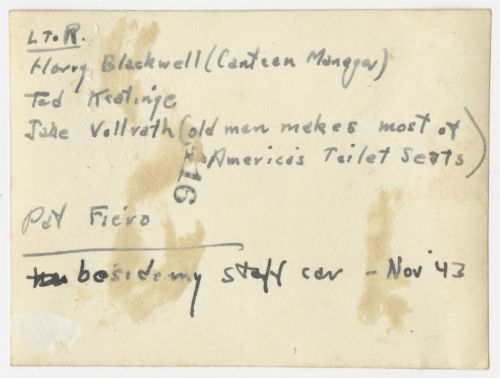 L To R.
Harry Blackwell (Canteen Manager)
Ted Keatinge
Jake Vollrath (old man makes most of
America's Toilet Seats)
16
Pat Fiero
beside my staff car - Nov '43